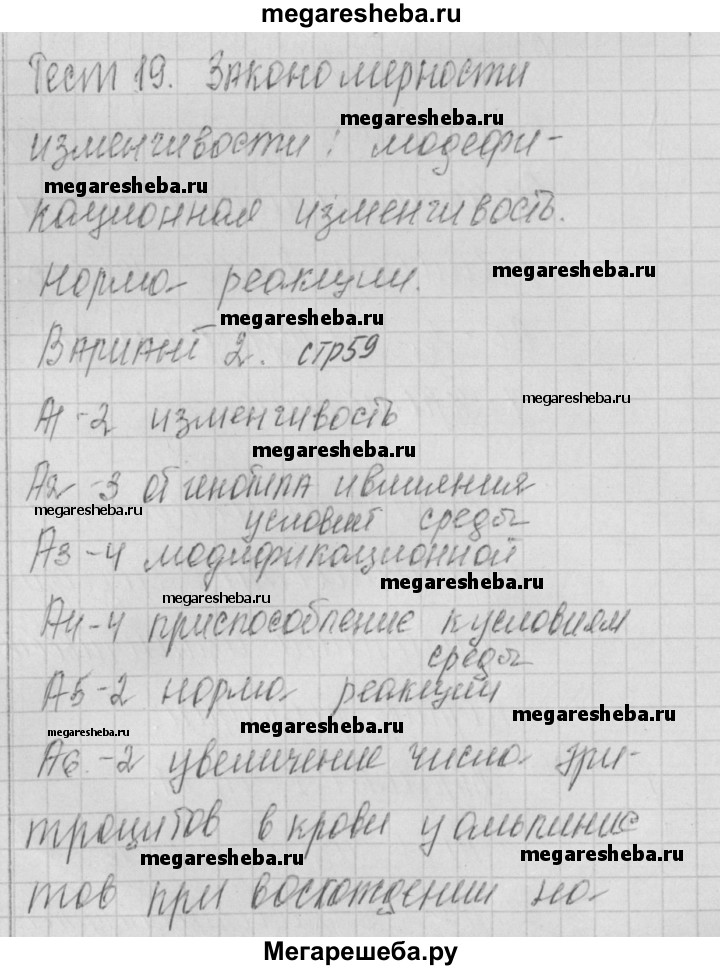 megaresheba.ru
Тест 19. Закономерности
megaresheba.ru
изменчивости: модефи-
megaresheba.ru
кационная изменчивость.
Норма реакции.
megaresheba.ru
megaresheba.ru
Вариант 2. стр59
megaresheba.ru
А1-2 изменчивость
megaresheba.ru
А2-3 от генотипа и влияния
megaresheba.ru
условий среды
А3-4 модификационной
megaresheba.ru
megaresheba.ru
А4-4 приспособление к условиям
среды
А5-2 норма реакции
megaresheba.ru
megaresheba.ru
megaresheba.ru
А6.-2 увеличение числа эри-
троцитов в крови у альпинис
megaresheba.ru
megaresheba.ru
тов при восхождении на
Мегарешеба.ру